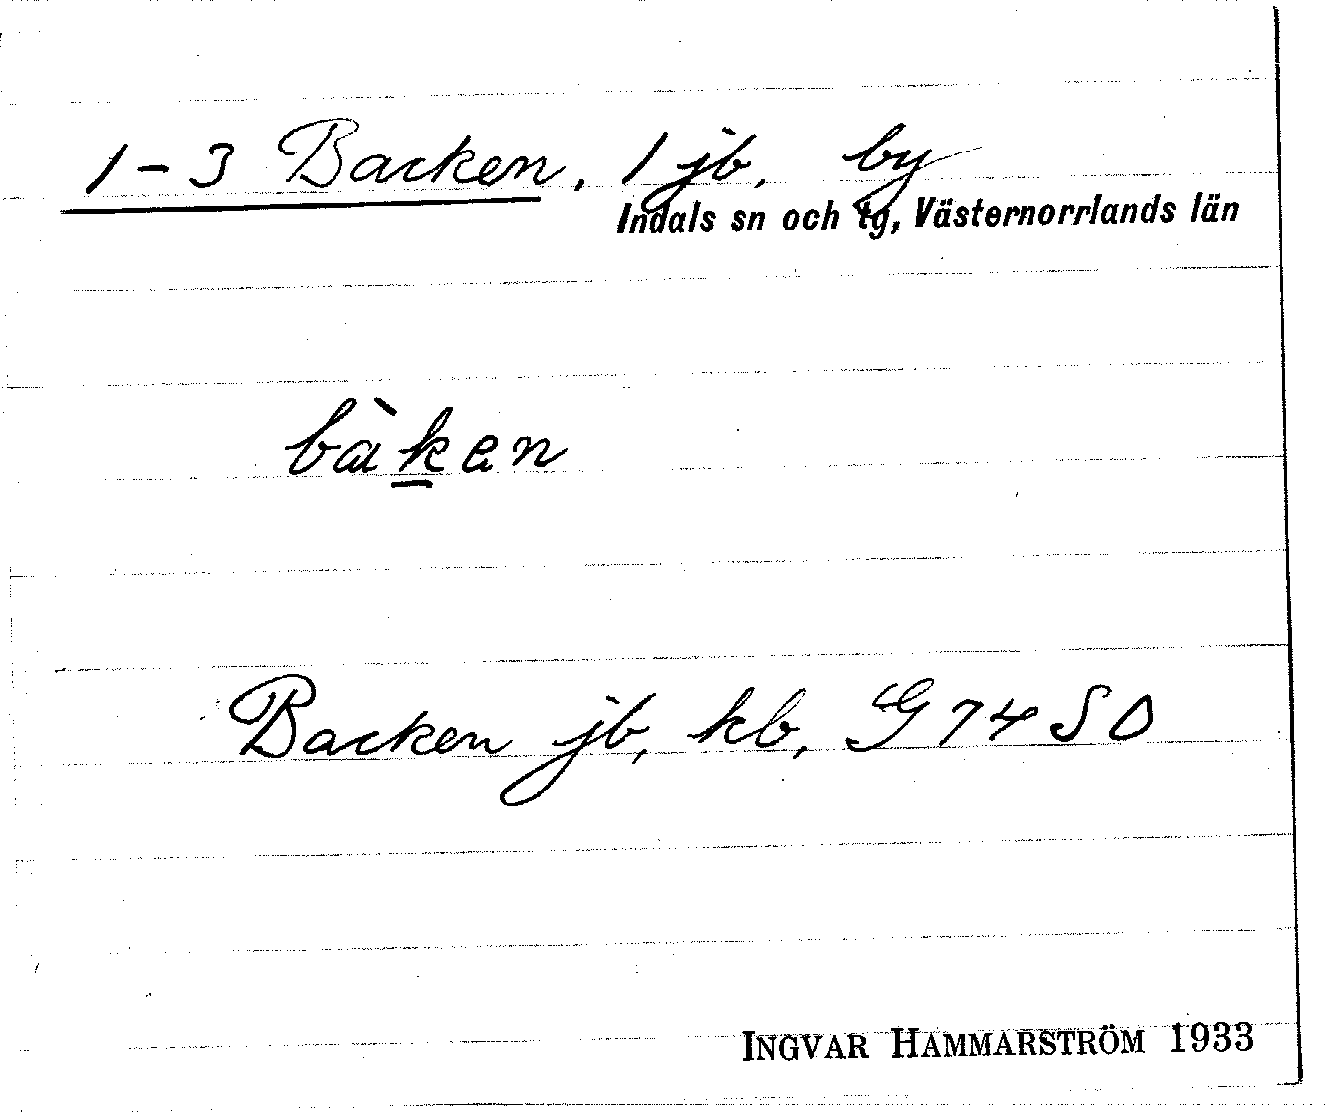 1-3 Backen, 1 jb, by
Indals sn och tg, Västernorrlands län
bàk̲en
Backen jb, kb, G 74 SO
INGVAR HAMMARSTRÖM 1933